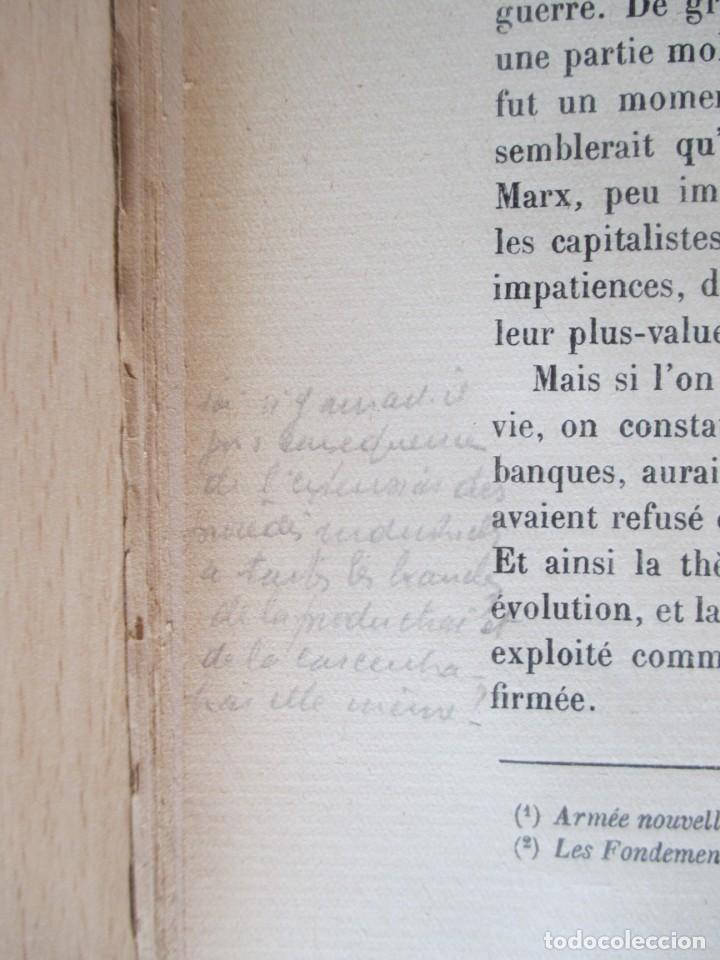 guerre. De gr
une partie mo
fut un momen
semblerait qu'
Marx, peu im
les capitalistes
impatiences, d
leur plus-value
Mais si l'on
vie, on consta
banques, aurai
avaient refusé
Et ainsi la thè
évolution, et la
exploité comm
firmée.
n'y aurait-il
pas conséquence
de l'extension des
procédés industriels
a toutes les branches
de la production et
de la concentra-
tion elle même?
(1) Armée nouvell
(2) Les Fondemen
todocoleccion